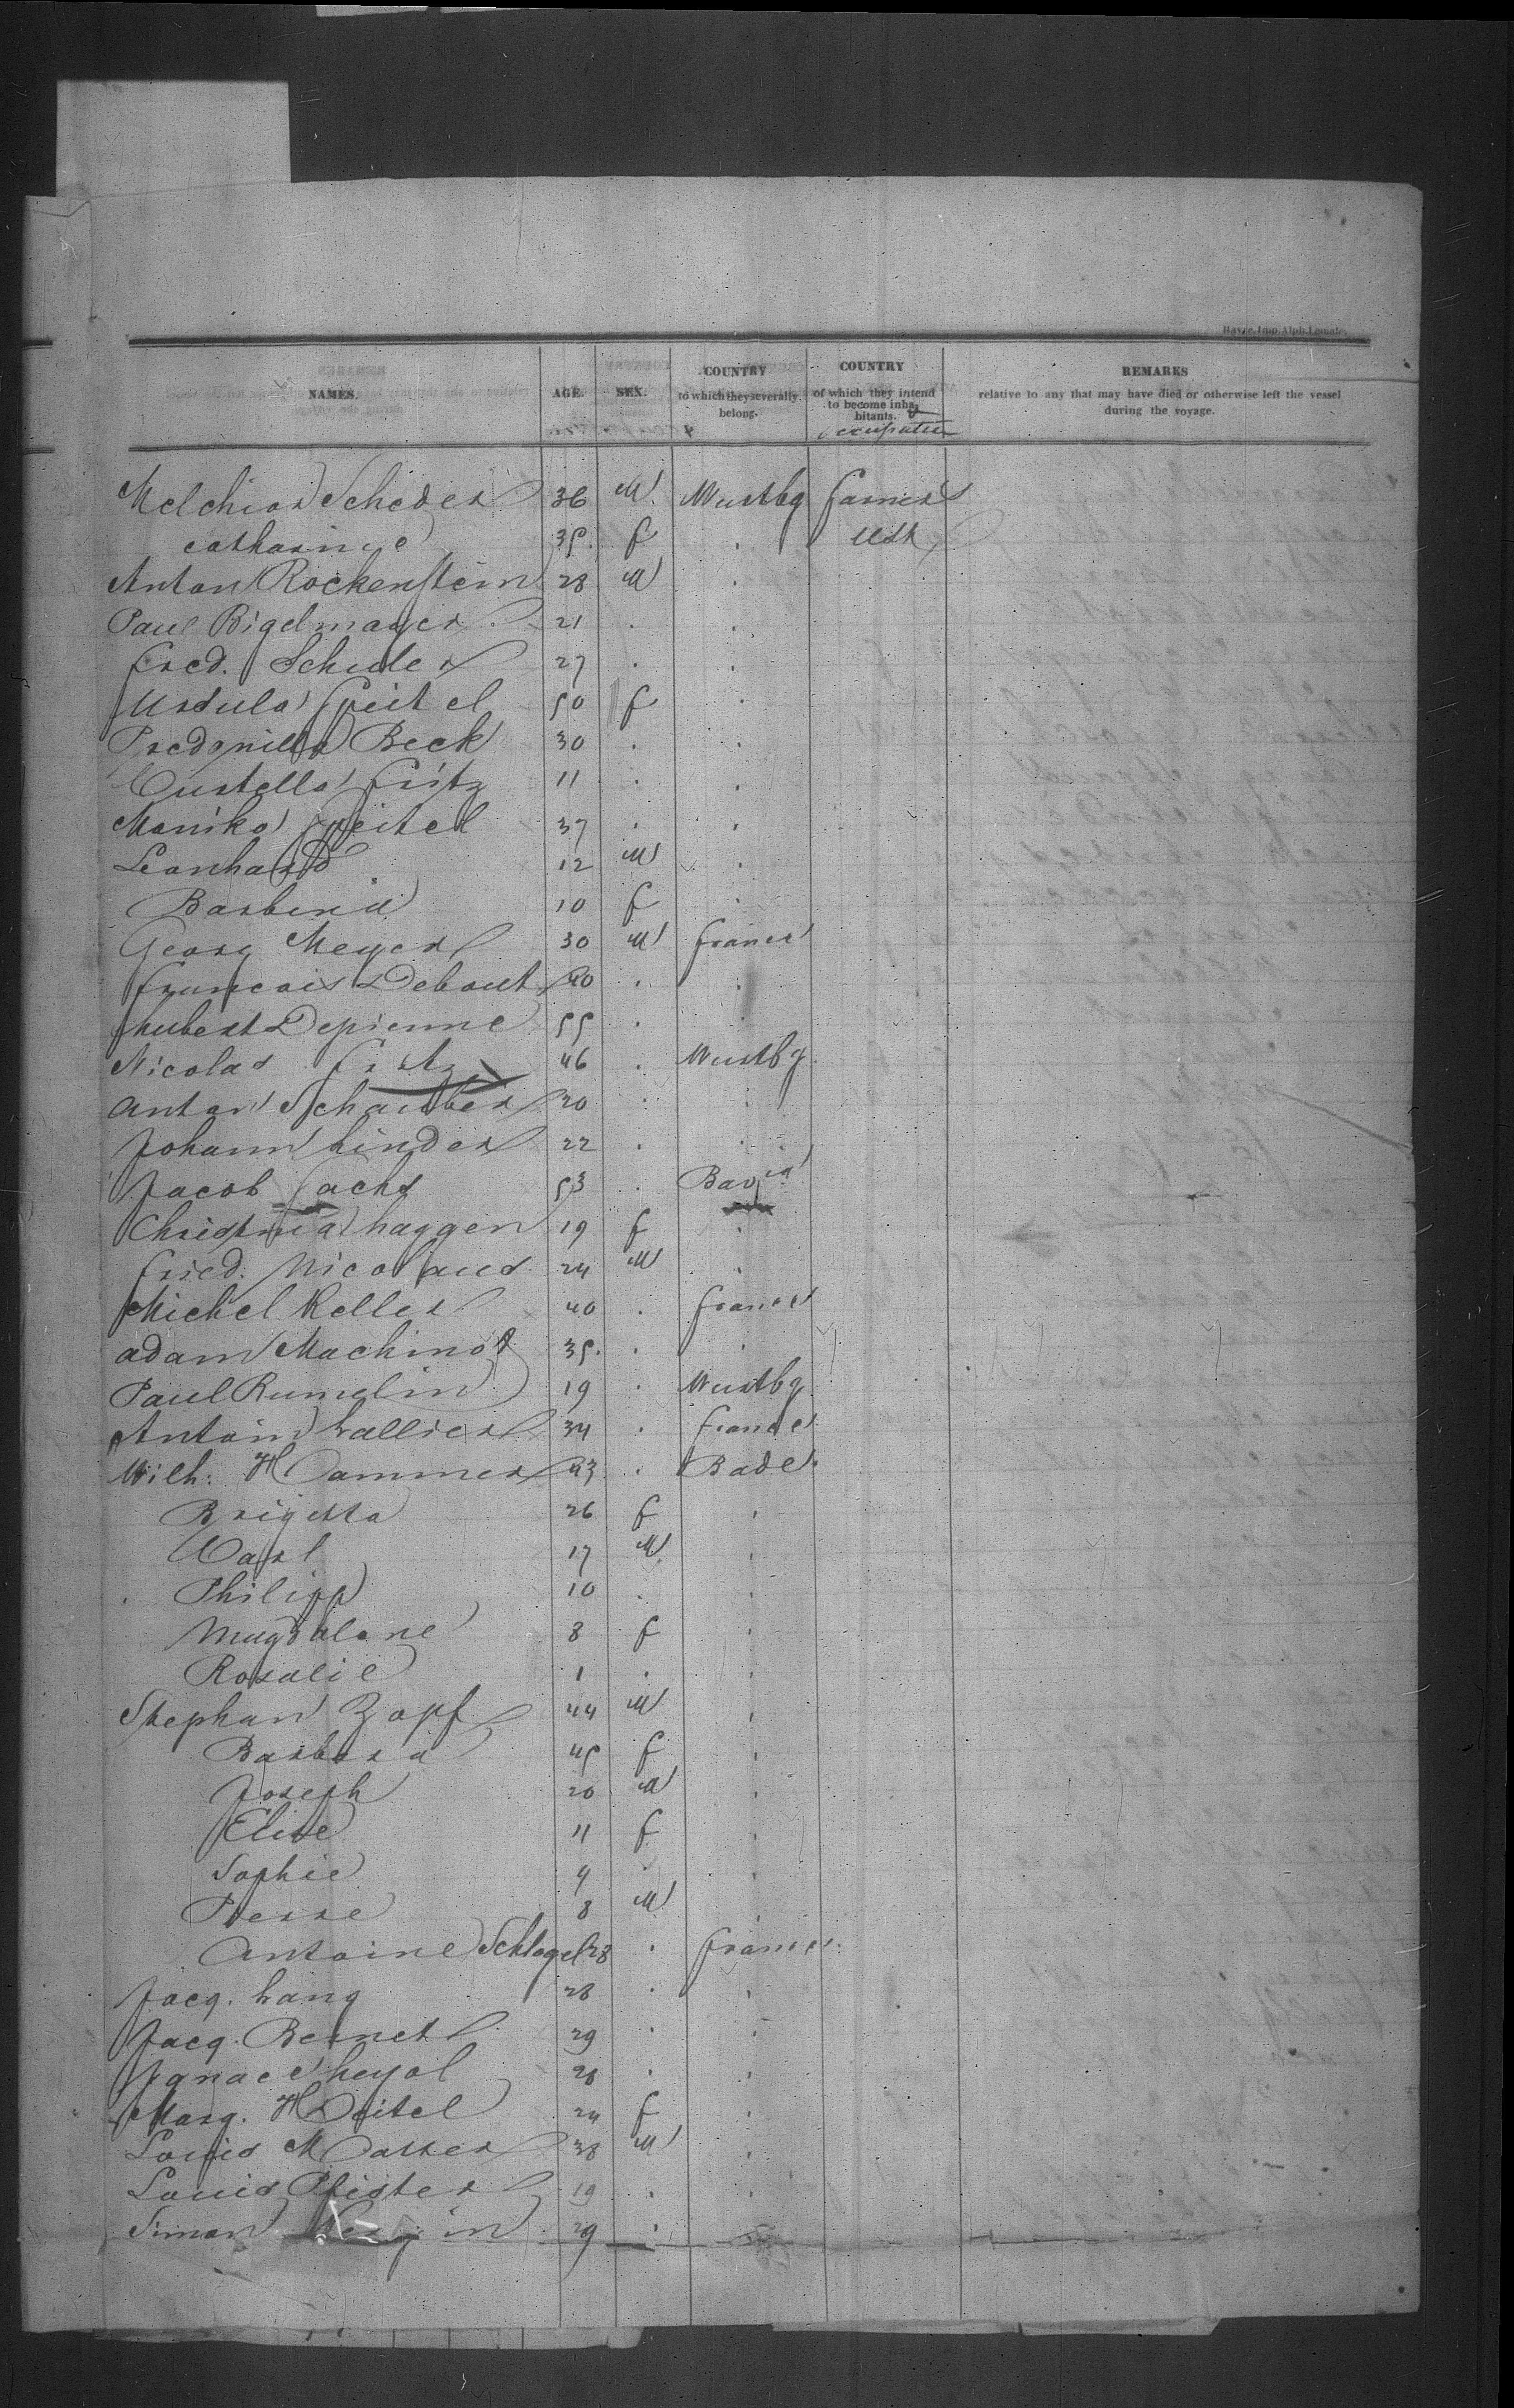 Havre, Imp. Alph. Lemale.
NAMES. AGE. SEX. COUNTRY to which they severally belong. COUNTRY of which they intend to become inhabitants. & occupation REMARKS relative to any that may have died or otherwise left the vessel during the voyage.
Melchior Scheder 36 M Wurtbg farmer
catharine 35. f . USA
Anton Rockenstein 28 M .
Paul Bigelmayer 21 . .
fred. Schuler 27 . .
Ursula Speitel 50 f .
Beck 30 . .
fritz 11 . .
Monika Speitel 37 . .
Leonhard 12 M .
Barbera 10 f .
Georg Meyer 30 M france
francois Debout 40 . .
hubert Depienne 55 .
Nicolas fritz 46 . Wurtbg.
anton Schaiber 20 . .
Johann Linder 22 . .
Jacob Sachs 53 . Bavia
Christina haggen 19 f .
fried. Nicolaus 24 M .
Michel Keller 40 . france
adam Machinot 35. . .
Paul Rumelin 19 . Wurtbg.
Antoin Lallier 34 . france
Wilh. Hammer 43. . Bade.
Brigitta 26 f .
Carl 17 M .
Philipp 10 . .
Magdalene 8 f .
Rosalie 1 . .
Stephan Zopf 44 M .
Barbara 45 f .
Joseph 20 M .
Elise 11 f .
Sophie 9 . .
Pierre 8 M .
Antoine Schlagel 28 . france.
Jacq. Lang 28 . .
Jacq. Bernet 29 . .
Ignace heyol 28 . .
Marg. Heitel 24 f .
Louis Masser 38 M .
Louis Pfister 19 . .
Simon 29 .